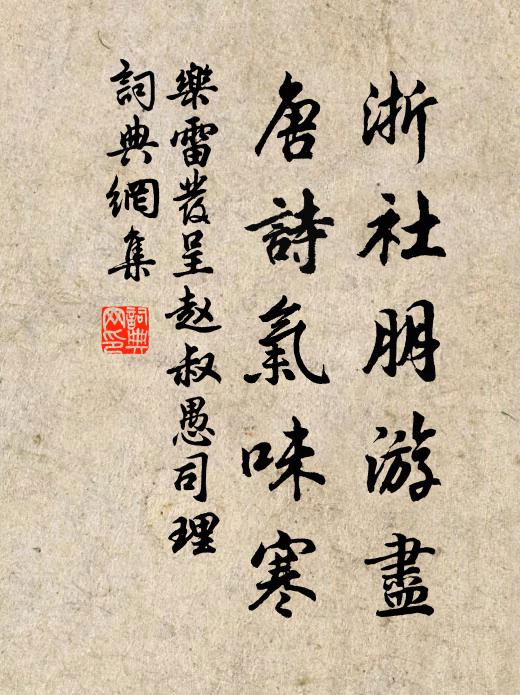 浙社朋游盡
唐詩氣味寒
樂雷發呈赵叔愚司理
詞典網集
詞典网印